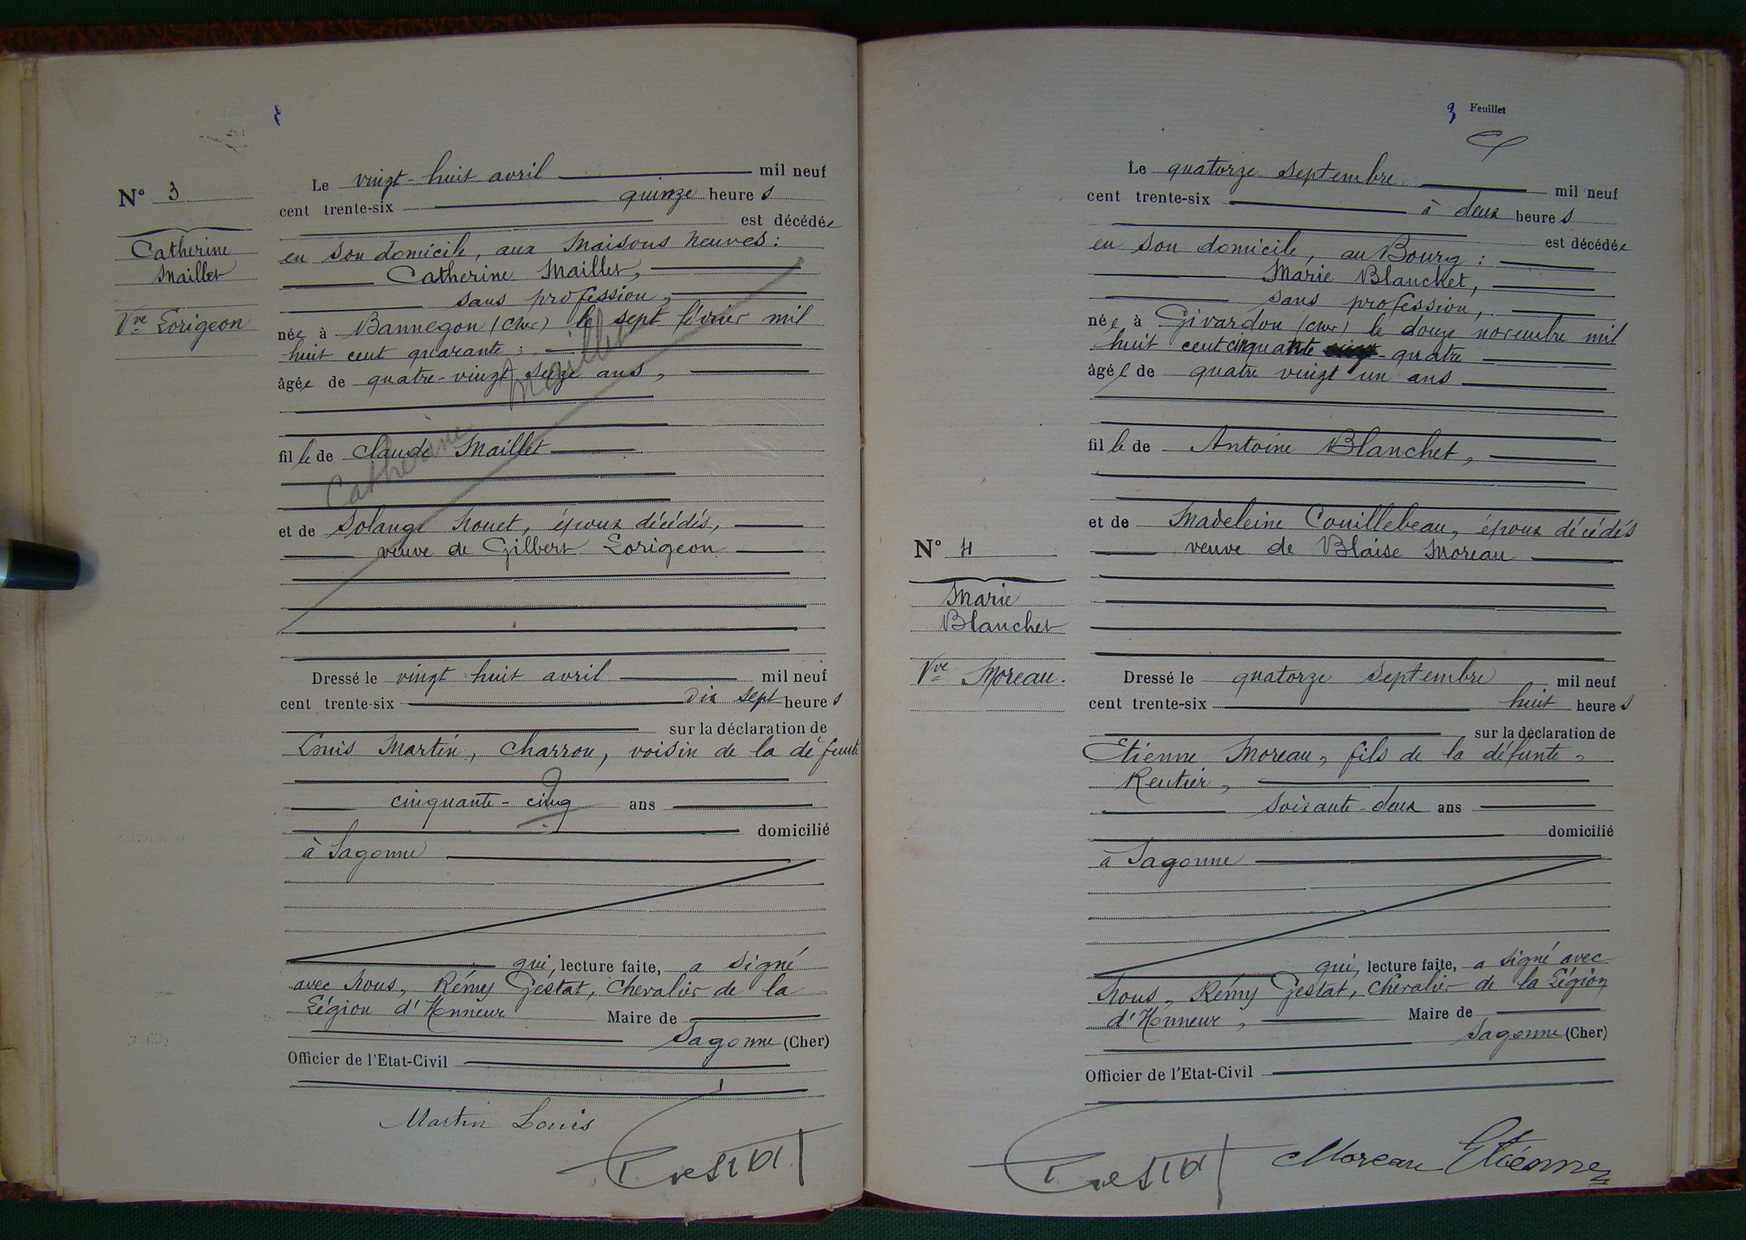 N° 3
Catherine
Maillet
Vve Lorigeon
Le vingt-huit avril mil neuf
cent trente-six quinze heures
est décédée
en son domicile, aux Maisons neuves :
Catherine Maillet,
sans profession,
née à Bannegon (Cher) le sept février mil
huit cent quarante ;
âgée de quatre-vingt seize ans,
Catherine Maillet
fille de Claude Maillet
et de Solange Rouet, époux décédés,
veuve de Gilbert Lorigeon
Dressé le vingt huit avril mil neuf
cent trente-six Dix sept heures
sur la déclaration de
Louis Martin, Charron, voisin de la défunte
cinquante-cinq ans
domicilié
à Sagonne
qui, lecture faite, a signé
avec Nous, Rémy Gestat, Chevalier de la
Légion d'Honneur Maire de
Sagonne (Cher)
Officier de l'Etat-Civil
Martin Louis
Gestat
3 Feuillet
N° 4
Marie
Blanchet
Vve Moreau.
Le quatorze septembre mil neuf
cent trente-six à deux heures
est décédée
en son domicile, au Bourg :
Marie Blanchet,
sans profession,
née à Givardon (Cher) le douze novembre mil
huit cent cinquante quatre
âgée de quatre vingt un ans
fille de Antoine Blanchet,
et de Madeleine Couillebeau, époux décédés
veuve de Blaise Moreau
Dressé le quatorze septembre mil neuf
cent trente-six huit heures
sur la déclaration de
Etienne Moreau, fils de la défunte,
Rentier,
soixante-deux ans
domicilié
à Sagonne
qui, lecture faite, a signé avec
Nous, Rémy Gestat, Chevalier de la Légion
d'Honneur, Maire de
Sagonne (Cher)
Officier de l'Etat-Civil
Gestat Moreau Etienne